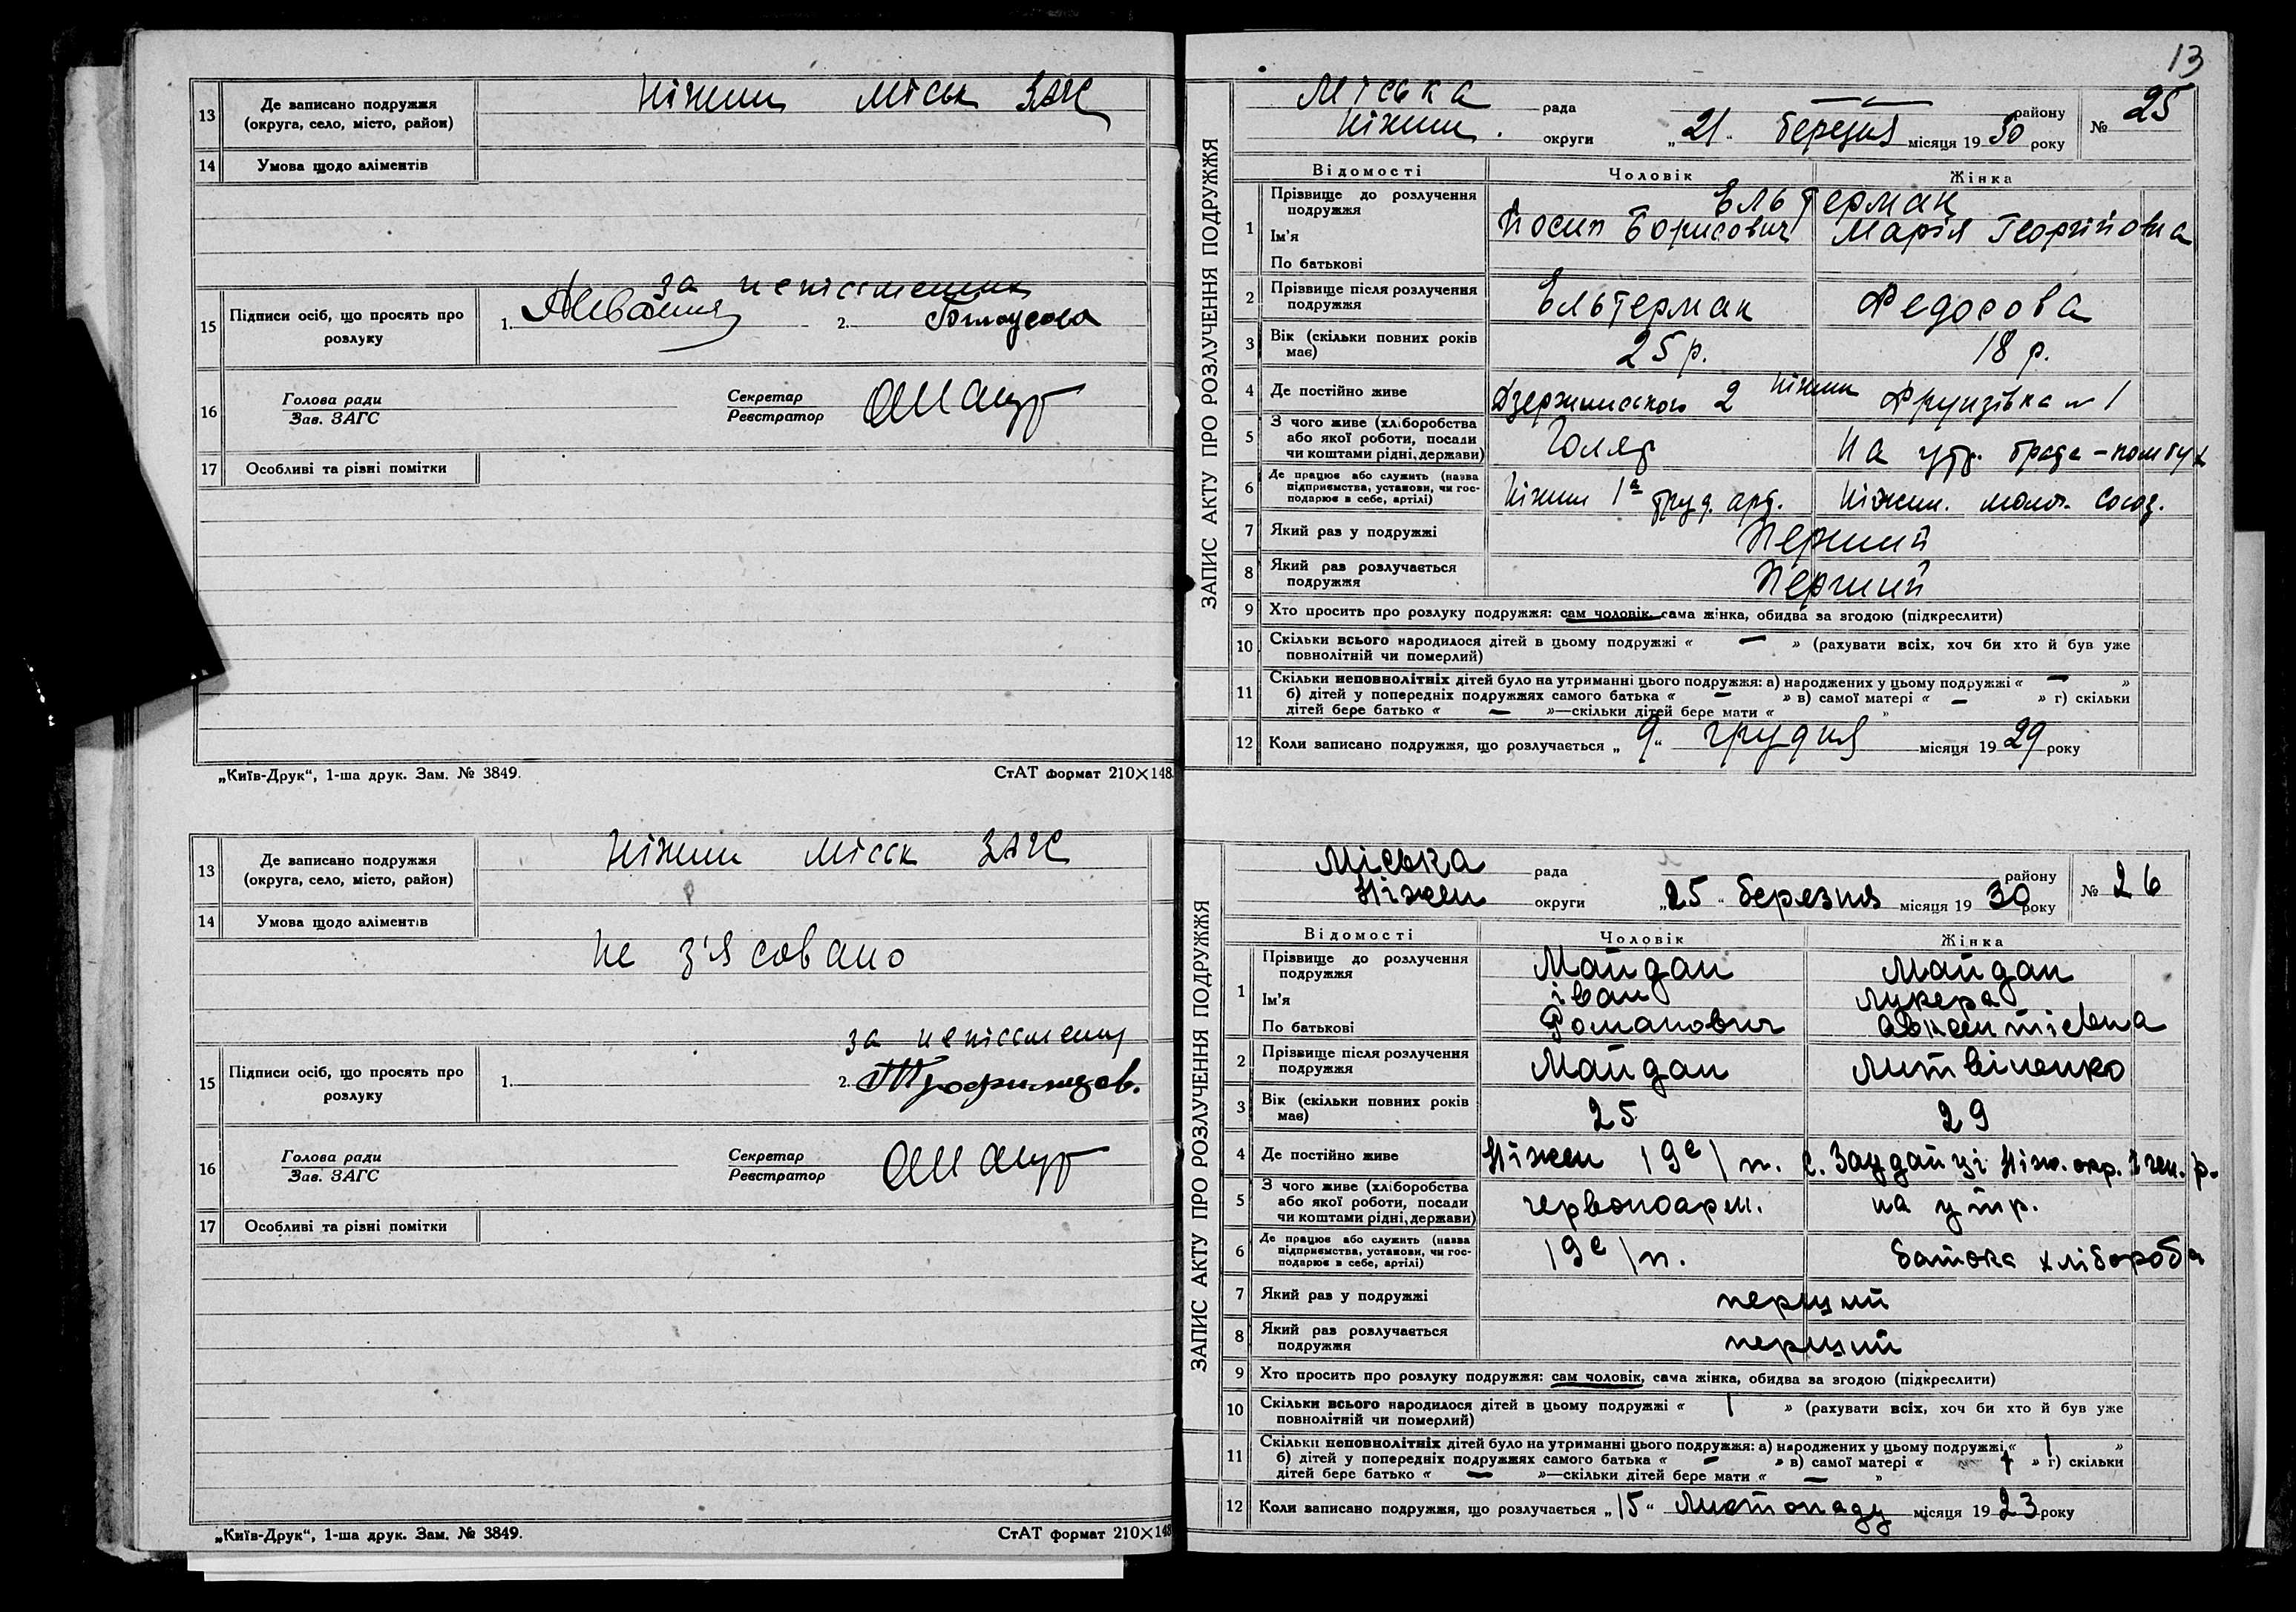 13 Де записано подружжя (округа, село, місто, район) Ніжин міськ ЗАГС
14 Умова щодо аліментів
за неписьменну
15 Підписи осіб, що просять про розлуку 1. 2.
16 Голова ради Зав. ЗАГС Секретар Реєстратор
17 Особливі та різні помітки
„Київ-Друк“, 1-ша друк. Зам. № 3849. СтАТ формат 210×148
13 Де записано подружжя (округа, село, місто, район) Ніжин міськ ЗАГС
14 Умова щодо аліментів
не з'ясовано
за неписьменну
15 Підписи осіб, що просять про розлуку 1. 2.
16 Голова ради Зав. ЗАГС Секретар Реєстратор
17 Особливі та різні помітки
„Київ-Друк“, 1-ша друк. Зам. № 3849. СтАТ формат 210×148
13
ЗАПИС АКТУ ПРО РОЗЛУЧЕННЯ ПОДРУЖЖЯ
Міська рада району № 25
Ніжин. округи „21“ березня місяця 1930 року
Відомості Чоловік Жінка
1 Прізвище до розлучення подружжя Ельтерман
Ім'я Йосип Борисович Марія Георгіївна
По батькові
2 Прізвище після розлучення подружжя Ельтерман Федосова
3 Вік (скільки повних років має) 25 р. 18 р.
4 Де постійно живе Дзержинського 2 Ніжин Фрунзівка № 1
5 З чого живе (хліборобства або якої роботи, посади чи коштами рідні, держави) на утр. брата
6 Де працює або служить (назва підприємства, установи, чи господарює в себе, артілі) Ніжин 1а труд. арт. Ніжин. молоч. союз.
7 Який раз у подружжі Перший
8 Який раз розлучається подружжя Перший
9 Хто просить про розлуку подружжя: сам чоловік, сама жінка, обидва за згодою (підкреслити)
10 Скільки всього народилося дітей в цьому подружжі « — » (рахувати всіх, хоч би хто й був уже
повнолітній чи померлий)
11 Скільки неповнолітніх дітей було на утриманні цього подружжя: а) народжених у цьому подружжі « — »
б) дітей у попередніх подружжях самого батька « — » в) самої матері « — » г) скільки
дітей бере батько « — »—скільки дітей бере мати « »
12 Коли записано подружжя, що розлучається „9“ грудня місяця 1929 року
ЗАПИС АКТУ ПРО РОЗЛУЧЕННЯ ПОДРУЖЖЯ
Міська рада району № 26
Ніжен округи „25“ березня місяця 1930 року
Відомості Чоловік Жінка
1 Прізвище до розлучення подружжя Майдан Майдан
Ім'я Іван Лукера
По батькові Романович Авксентіевна
2 Прізвище після розлучення подружжя Майдан Литвіненко
3 Вік (скільки повних років має) 25 29
4 Де постійно живе Ніжен 19 с/п.
5 З чого живе (хліборобства або якої роботи, посади чи коштами рідні, держави) червоноарм. на утр.
6 Де працює або служить (назва підприємства, установи, чи господарює в себе, артілі) 19 с/п. батька хлібороба
7 Який раз у подружжі перший
8 Який раз розлучається подружжя перший
9 Хто просить про розлуку подружжя: сам чоловік, сама жінка, обидва за згодою (підкреслити)
10 Скільки всього народилося дітей в цьому подружжі « 1 » (рахувати всіх, хоч би хто й був уже
повнолітній чи померлий)
11 Скільки неповнолітніх дітей було на утриманні цього подружжя: а) народжених у цьому подружжі « 1 »
б) дітей у попередніх подружжях самого батька « — » в) самої матері « » г) скільки
дітей бере батько « — »—скільки дітей бере мати « — »
12 Коли записано подружжя, що розлучається „15“ листопаду місяця 1923 року